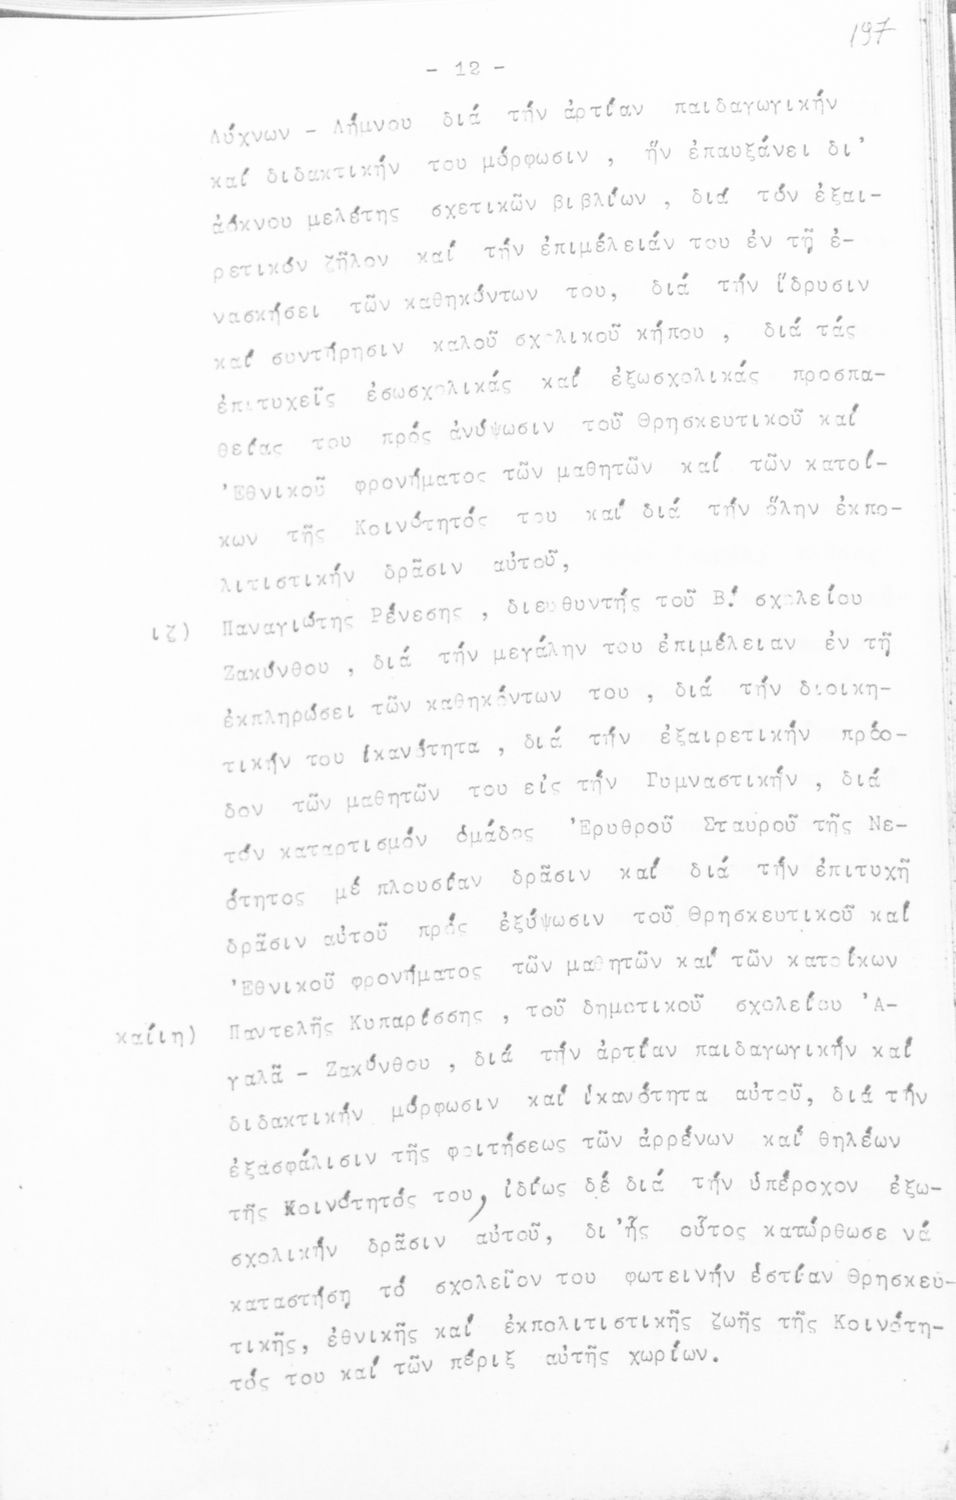 197
- 12 -
Λύχνων - Λήμνου διά τήν ἀρτίαν παιδαγωγικήν
καί διδακτικήν του μόρφωσιν , ἥν ἐπαυξάνει δι'
ἀόκνου μελέτης σχετικῶν βιβλίων , διά τόν ἐξαι-
ρετικόν ζῆλον καί τήν ἐπιμέλειάν του ἐν τῇ ἐ-
νασκήσει τῶν καθηκόντων του, διά τήν ἵδρυσιν
καί συντήρησιν καλοῦ σχολικοῦ κήπου , διά τάς
ἐπιτυχεῖς ἐσωσχολικάς καί ἐξωσχολικάς προσπα-
θείας του πρός ἀνύψωσιν τοῦ θρησκευτικοῦ καί
'Εθνικοῦ φρονήματος τῶν μαθητῶν καί τῶν κατοί-
κων τῆς Κοινότητός του καί διά τήν ὅλην ἐκπο-
λιτιστικήν δρᾶσιν αὐτοῦ,
ιζ) Παναγιώτης Ρένεσης , διευθυντής τοῦ Β! σχολείου
Ζακύνθου , διά τήν μεγάλην του ἐπιμέλειαν ἐν τῇ
ἐκπληρώσει τῶν καθηκόντων του , διά τήν διοικη-
τικήν του ἱκανότητα , διά τήν ἐξαιρετικήν πρόο-
δον τῶν μαθητῶν του εἰς τήν Γυμναστικήν , διά
τόν καταρτισμόν ὁμάδος 'Ερυθροῦ Σταυροῦ τῆς Νε-
ότητος μέ πλουσίαν δρᾶσιν καί διά τήν ἐπιτυχῆ
δρᾶσιν αὐτοῦ πρός ἐξύψωσιν τοῦ θρησκευτικοῦ καί
'Εθνικοῦ φρονήματος τῶν μαθητῶν καί τῶν κατοίκων
καίιη) Παντελῆς Κυπαρίσσης , τοῦ δημοτικοῦ σχολείου 'Α-
γαλᾶ - Ζακύνθου , διά τήν ἀρτίαν παιδαγωγικήν καί
διδακτικήν μόρφωσιν καί ἱκανότητα αὐτοῦ, διά τήν
ἐξασφάλισιν τῆς φοιτήσεως τῶν ἀρρένων καί θηλέων
τῆς Κοινότητός του, ἰδίως δέ διά τήν ὑπέροχον ἐξω-
σχολικήν δρᾶσιν αὐτοῦ, δι 'ἧς οὗτος κατώρθωσε νά
καταστήσῃ τό σχολεῖον του φωτεινήν ἑστίαν θρησκευ-
τικῆς, ἐθνικῆς καί ἐκπολιτιστικῆς ζωῆς τῆς Κοινότη-
τός του καί τῶν πέριξ αὐτῆς χωρίων.